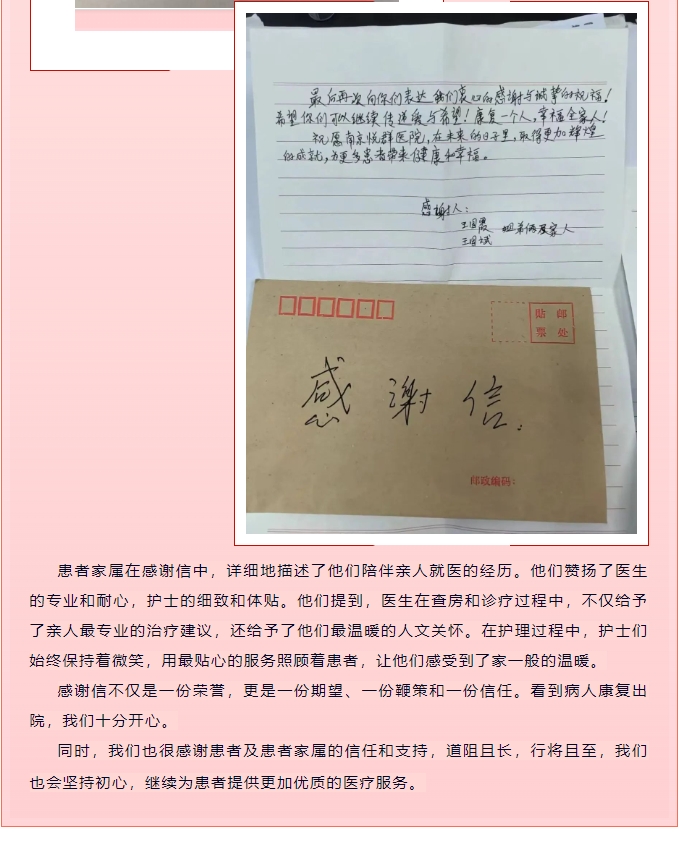 最后再次向你们表达我们衷心的感谢与诚挚的祝福！
希望你们可以继续传递爱与希望！康复一个人，幸福全家人！
祝愿南京悦群医院，在未来的日子里，取得更加辉煌
的成就，为更多患者带来健康和幸福。
感谢人：
王国霞 姐弟俩及家人
王国斌
贴 邮
票 处
感 谢 信
邮政编码：
患者家属在感谢信中，详细地描述了他们陪伴亲人就医的经历。他们赞扬了医生
的专业和耐心，护士的细致和体贴。他们提到，医生在查房和诊疗过程中，不仅给予
了亲人最专业的治疗建议，还给予了他们最温暖的人文关怀。在护理过程中，护士们
始终保持着微笑，用最贴心的服务照顾着患者，让他们感受到了家一般的温暖。
感谢信不仅是一份荣誉，更是一份期望、一份鞭策和一份信任。看到病人康复出
院，我们十分开心。
同时，我们也很感谢患者及患者家属的信任和支持，道阻且长，行将且至，我们
也会坚持初心，继续为患者提供更加优质的医疗服务。